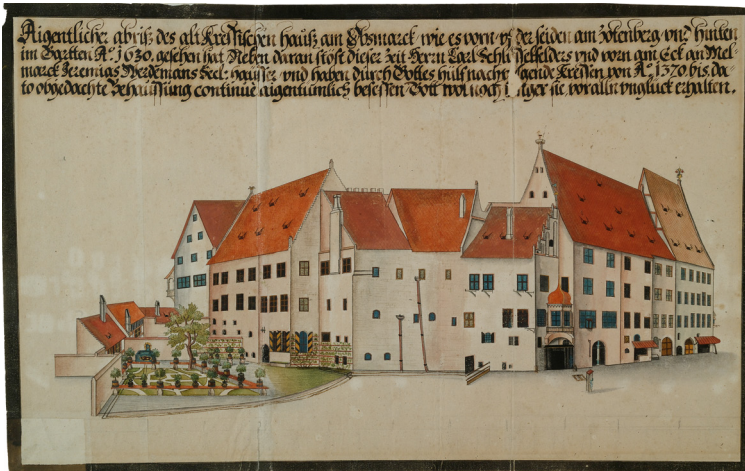 Aigentlicher abriß des alt Kressischen hauß am Obsmarck, wie es vorn vf der seiden am Zotenberg vnd hinten
im Gartten Aº. 1630. gesehen hat Neben daran stost dieser Zeit Herrn Carl Schlüsselfelders vnd vorn am Eck an Mel-
marck Jeremias Werdemans Seel: heusser, vnd haben durch Gottes hülf nacht gende Kressen von Aº. 1370. bis da-
to obgedachte Behaussung continue aigentümlich besessen Gott wol noch lenger sie vor alln vnglück erhalten.